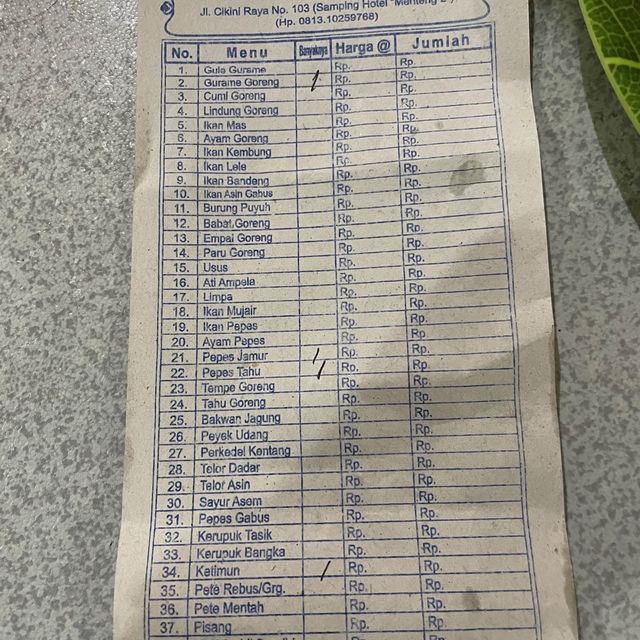 Jl. Cikini Raya No. 103 (Samping Hotel "Menteng
(Hp. 0813.10259768)
No. Menu Banyaknya Harga @ Jumlah
1. Gule Gurame Rp. Rp.
2. Gurame Goreng / Rp. Rp.
3. Cumi Goreng Rp. Rp.
4. Lindung Goreng Rp. Rp.
5. Ikan Mas Rp. Rp.
6. Ayam Goreng Rp. Rp.
7. Ikan Kembung Rp. Rp.
8. Ikan Lele Rp. Rp.
9. Ikan Bandeng Rp. Rp.
10. Ikan Asin Gabus Rp. Rp.
11. Burung Puyuh Rp. Rp.
12. Babat Goreng Rp. Rp.
13. Empal Goreng Rp. Rp.
14. Paru Goreng Rp. Rp.
15. Usus Rp. Rp.
16. Ati Ampela Rp. Rp.
17. Limpa Rp. Rp.
18. Ikan Mujair Rp. Rp.
19. Ikan Pepes Rp. Rp.
20. Ayam Pepes Rp. Rp.
21. Pepes Jamur / Rp. Rp.
22. Pepes Tahu / Rp. Rp.
23. Tempe Goreng Rp. Rp.
24. Tahu Goreng Rp. Rp.
25. Bakwan Jagung Rp. Rp.
26. Peyek Udang Rp. Rp.
27. Perkedel Kentang Rp. Rp.
28. Telor Dadar Rp. Rp.
29. Telor Asin Rp. Rp.
30. Sayur Asem Rp. Rp.
31. Pepes Gabus Rp. Rp.
32. Kerupuk Tasik Rp. Rp.
33. Kerupuk Bangka Rp. Rp.
34. Ketimun / Rp. Rp.
35. Pete Rebus/Grg. Rp. Rp.
36. Pete Mentah Rp. Rp.
37. Pisang Rp. Rp.